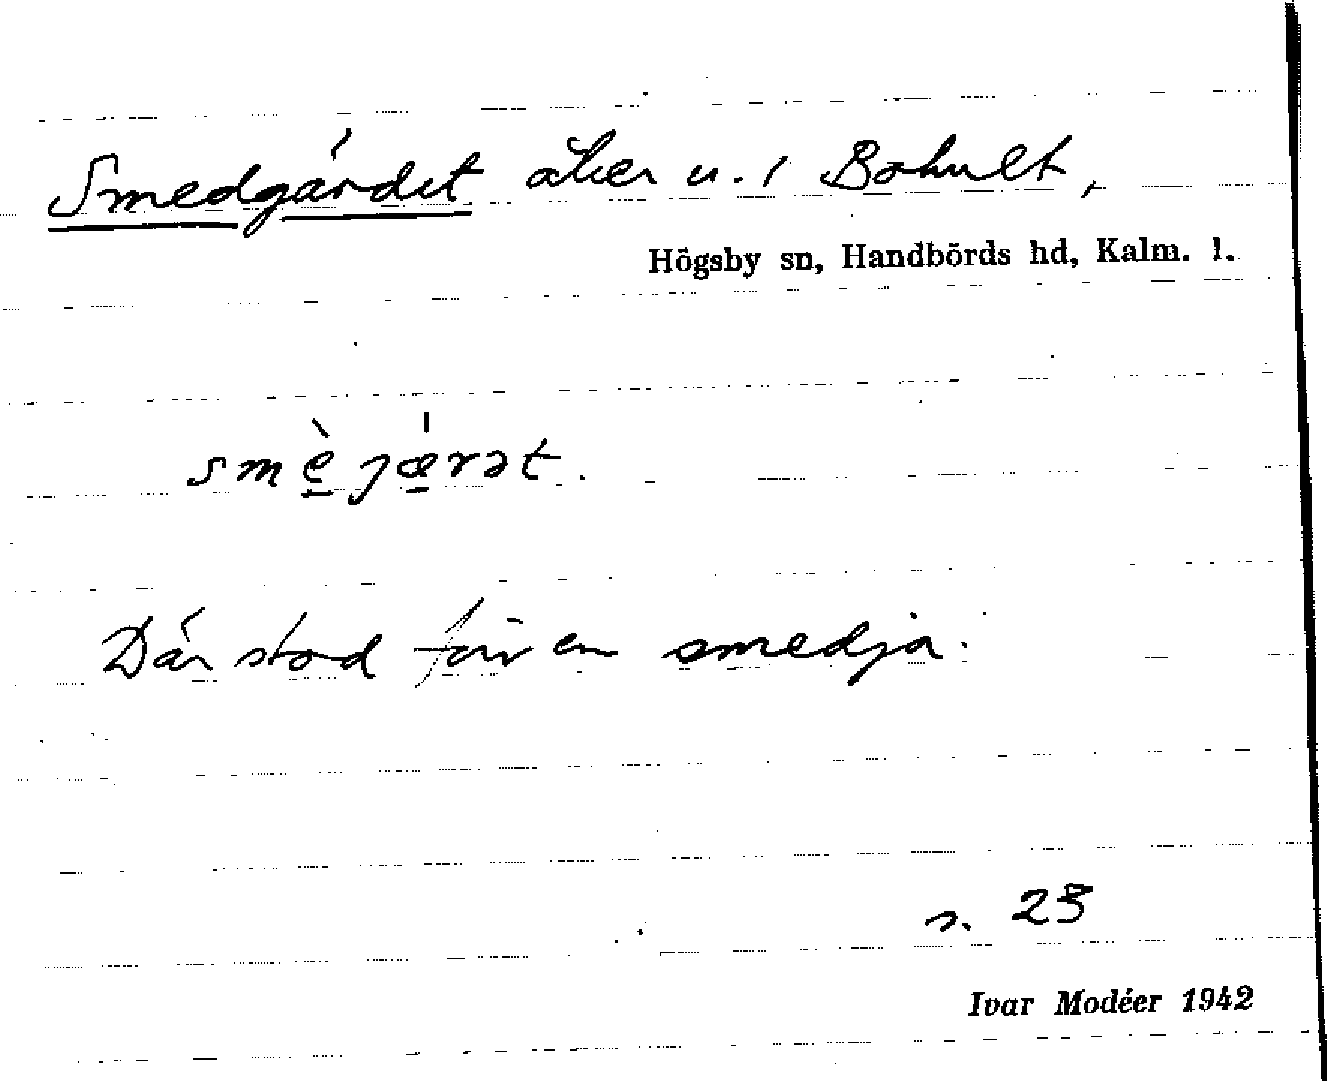 Smedgärdet åker u. / Bohult,
Högsby sn, Handbörds hd, Kalm. l.
smèjærət.
Där stod förr en smedja.
s. 23
Ivar Modéer 1942